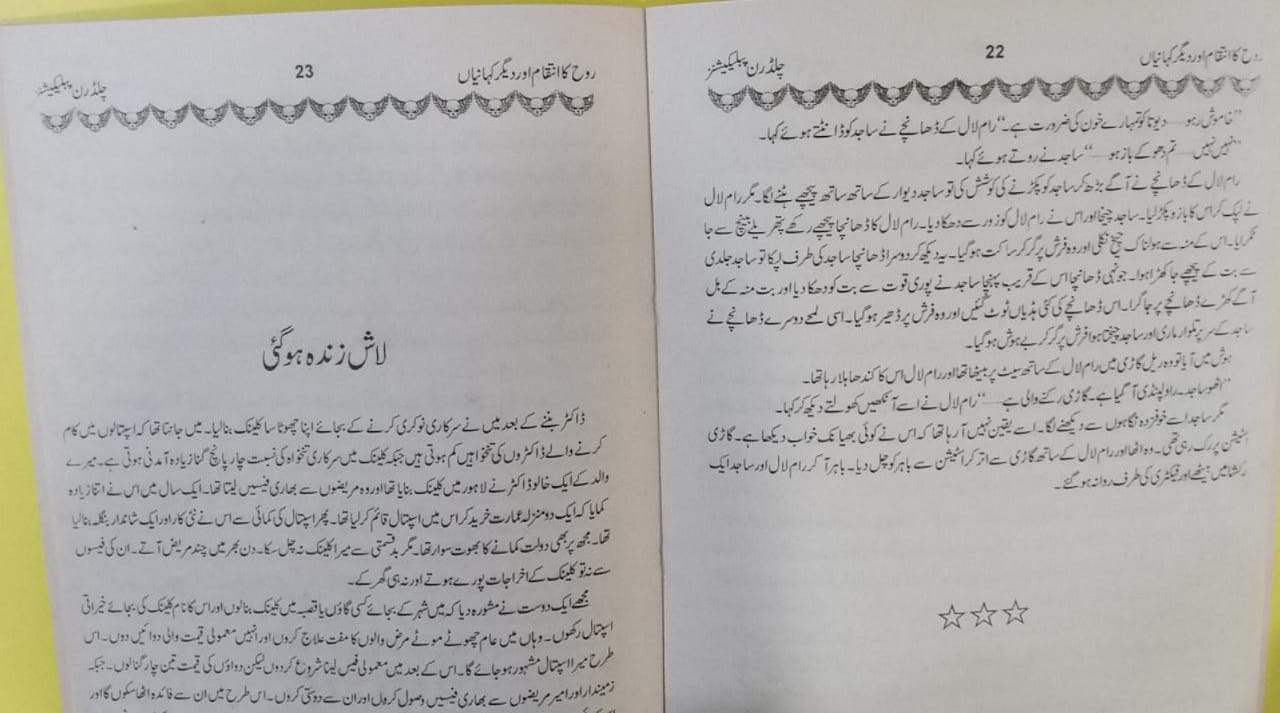 روح کا انتقام اور دیگر کہانیاں
22
چلڈرن پبلیکیشنز
”خاموش رہو — دیوتا کو تمہارے خون کی ضرورت ہے۔“ رام لال کے ڈھانچے نے ساجد کو ڈانٹتے ہوئے کہا۔
”نہیں نہیں — تم دھوکے باز ہو —“ ساجد نے روتے ہوئے کہا۔
رام لال کے ڈھانچے نے آگے بڑھ کر ساجد کو پکڑنے کی کوشش کی تو ساجد دیوار کے ساتھ ساتھ پیچھے ہٹنے لگا۔ مگر رام لال
نے لپک کر اس کا بازو پکڑ لیا۔ ساجد چیخا اور اس نے رام لال کو زور سے دھکا دیا۔ رام لال کا ڈھانچا پیچھے رکھے پتھریلے بینچ سے جا
ٹکرایا۔ اس کے منہ سے ہولناک چیخ نکلی اور وہ فرش پر گر کر ساکت ہو گیا۔ یہ دیکھ کر دوسرا ڈھانچا ساجد کی طرف لپکا تو ساجد جلدی
سے بت کے پیچھے جا کھڑا ہوا۔ جونہی ڈھانچا اس کے قریب پہنچا ساجد نے پوری قوت سے بت کو دھکا دیا اور بت منہ کے بل
آگے کھڑے ڈھانچے پر جا گرا۔ اس ڈھانچے کی کئی ہڈیاں ٹوٹ گئیں اور وہ فرش پر ڈھیر ہو گیا۔ اسی لمحے دوسرے ڈھانچے نے
ساجد کے سر پر تلوار ماری اور ساجد چیختا ہوا فرش پر گر کر بے ہوش ہو گیا۔
ہوش میں آیا تو وہ ریل گاڑی میں رام لال کے ساتھ سیٹ پر بیٹھا تھا اور رام لال اس کا کندھا ہلا رہا تھا۔
”اٹھو ساجد۔ راولپنڈی آ گیا ہے۔ گاڑی رکنے والی ہے —“ رام لال نے اسے آنکھیں کھولتے دیکھ کر کہا۔
مگر ساجد اسے خوفزدہ نگاہوں سے دیکھنے لگا۔ اسے یقین نہیں آ رہا تھا کہ اس نے کوئی بھیانک خواب دیکھا ہے۔ گاڑی
اسٹیشن پر رک رہی تھی۔ وہ اٹھا اور رام لال کے ساتھ گاڑی سے اتر کر اسٹیشن سے باہر کو چل دیا۔ باہر آ کر رام لال اور ساجد ایک
رکشا میں بیٹھے اور فیکٹری کی طرف روانہ ہو گئے۔
☆☆☆
روح کا انتقام اور دیگر کہانیاں
23
چلڈرن پبلیکیشنز
لاش زندہ ہو گئی
ڈاکٹر بننے کے بعد میں نے سرکاری نوکری کرنے کے بجائے اپنا چھوٹا سا کلینک بنا لیا۔ میں جانتا تھا کہ اسپتالوں میں کام
کرنے والے ڈاکٹروں کی تنخواہیں کم ہوتی ہیں جبکہ کلینک میں سرکاری تنخواہ کی نسبت چار پانچ گنا زیادہ آمدنی ہوتی ہے۔ میرے
والد کے ایک خالو ڈاکٹر نے لاہور میں کلینک بنایا تھا اور وہ مریضوں سے بھاری فیسیں لیتا تھا۔ ایک سال میں اس نے اتنا زیادہ
کمایا کہ ایک دو منزلہ عمارت خرید کر اس میں اسپتال قائم کر لیا تھا۔ پھر اسپتال کی کمائی سے اس نے نئی کار اور ایک شاندار بنگلہ بنا لیا
تھا۔ مجھ پر بھی دولت کمانے کا بھوت سوار تھا۔ مگر بدقسمتی سے میرا کلینک نہ چل سکا۔ دن بھر میں چند مریض آتے۔ ان کی فیسوں
سے نہ تو کلینک کے اخراجات پورے ہوتے اور نہ ہی گھر کے۔
مجھے ایک دوست نے مشورہ دیا کہ میں شہر کے بجائے کسی گاؤں یا قصبہ میں کلینک بنا لوں اور اس کا نام کلینک کی بجائے خیراتی
اسپتال رکھوں۔ وہاں میں عام چھوٹے موٹے مرض والوں کا مفت علاج کروں اور انہیں معمولی قیمت والی دوائیں دوں۔ اس
طرح میرا اسپتال مشہور ہو جائے گا۔ اس کے بعد میں معمولی فیس لینا شروع کر دوں لیکن دواؤں کی قیمت تین چار گنا لوں۔ جبکہ
زمیندار اور امیر مریضوں سے بھاری فیسیں وصول کروں اور ان سے دوستی کروں۔ اس طرح میں ان سے فائدہ اٹھا سکوں گا اور